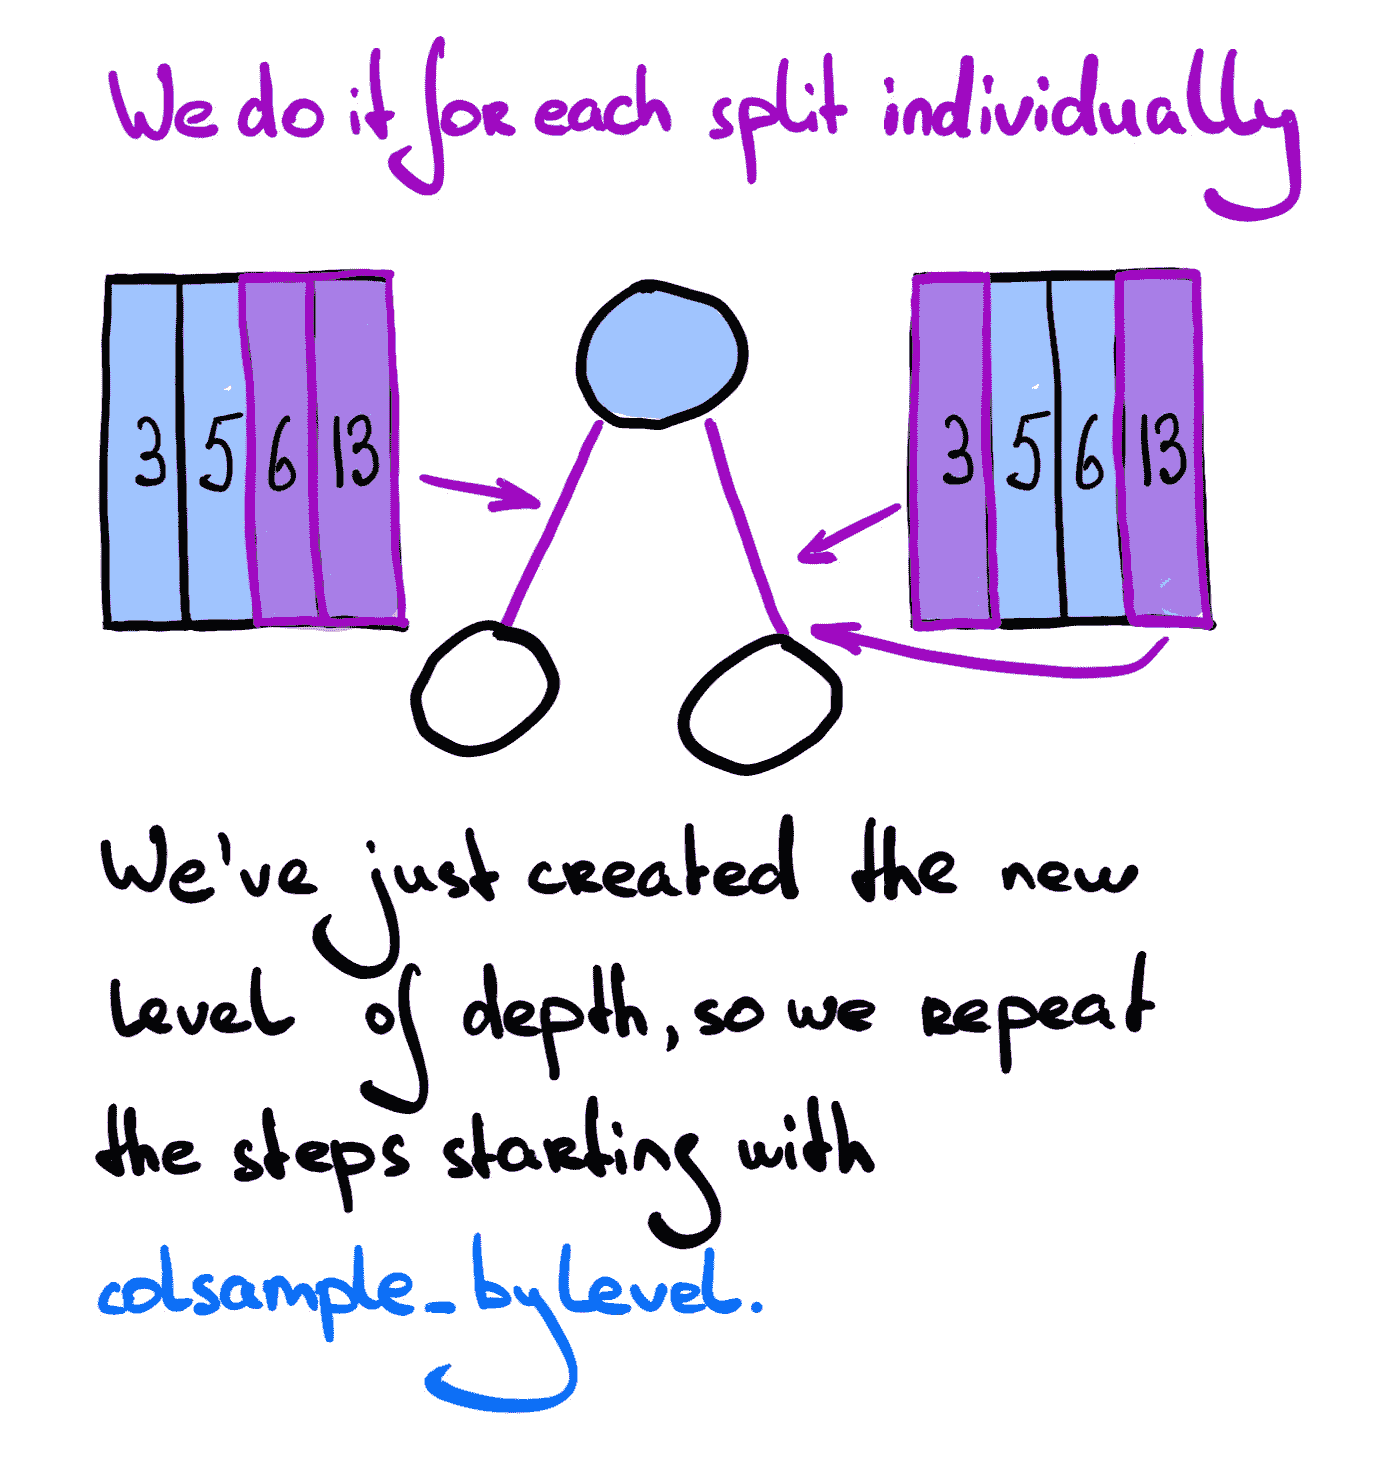 We do it for each split individually
3 5 6 13
3 5 6 13
We've just created the new
level of depth, so we repeat
the steps starting with
colsample_bylevel.